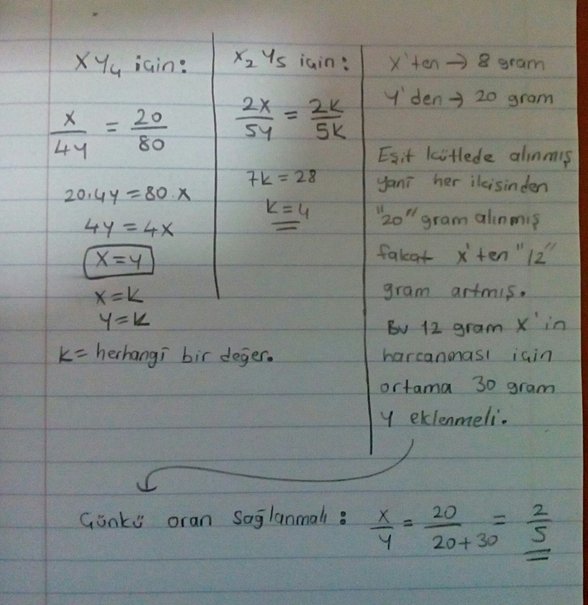 XY₄ için:
x/4y = 20/80
20.4y = 80.x
4y = 4x
x = y
x = k
y = k
k = herhangi bir değer.
X₂Y₅ için:
2x/5y = 2k/5k
7k = 28
k = 4
x'ten → 8 gram
y'den → 20 gram
Eşit kütlede alınmış
yani her ikisinden
"20" gram alınmış
fakat x'ten "12"
gram artmış.
Bu 12 gram x'in
harcanması için
ortama 30 gram
y eklenmeli.
Çünkü oran sağlanmalı: x/y = 20/20+30 = 2/5